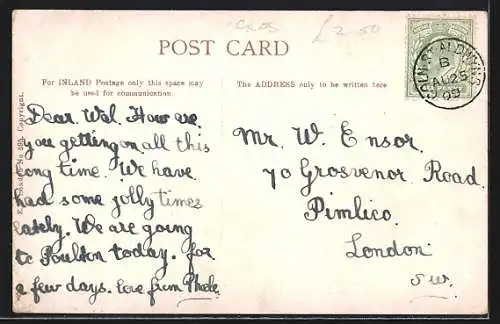 CROS
£2.50
POST CARD
For INLAND Postage only this space may
be used for communication.
The ADDRESS only to be written here
Dear Wal. How are
you getting on all this
long time. We have
had some jolly times
lately. We are going
to Poulton today. for
a few days. love from
Mr. W. Ensor.
70 Grosvenor Road.
Pimlico.
London.
S.W.
B
AU 25
09
Copyright.